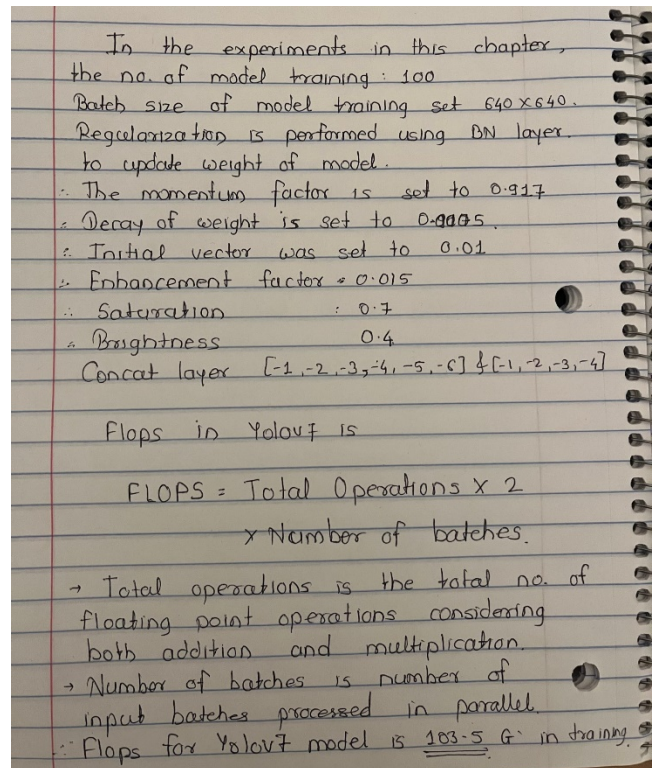 In the experiments in this chapter,
the no. of model training : 100
Batch size of model training set 640 x 640.
Regularization is performed using BN layer.
to update weight of model.
∴ The momentum factor is set to 0.917
∴ Decay of weight is set to
∴ Initial vector was set to 0.01
∴ Enhancement factor = 0.015
∴ Saturation : 0.7
∴ Brightness 0.4
Concat layer [-1, -2, -3, -4, -5, -6] & [-1, -2, -3, -4]
Flops in Yolov7 is
FLOPS = Total Operations x 2
x Number of batches.
→ Total operations is the total no. of
floating point operations considering
both addition and multiplication.
→ Number of batches is number of
input batches processed in parallel.
∴ Flops for Yolov7 model is 103.5 G. in training.